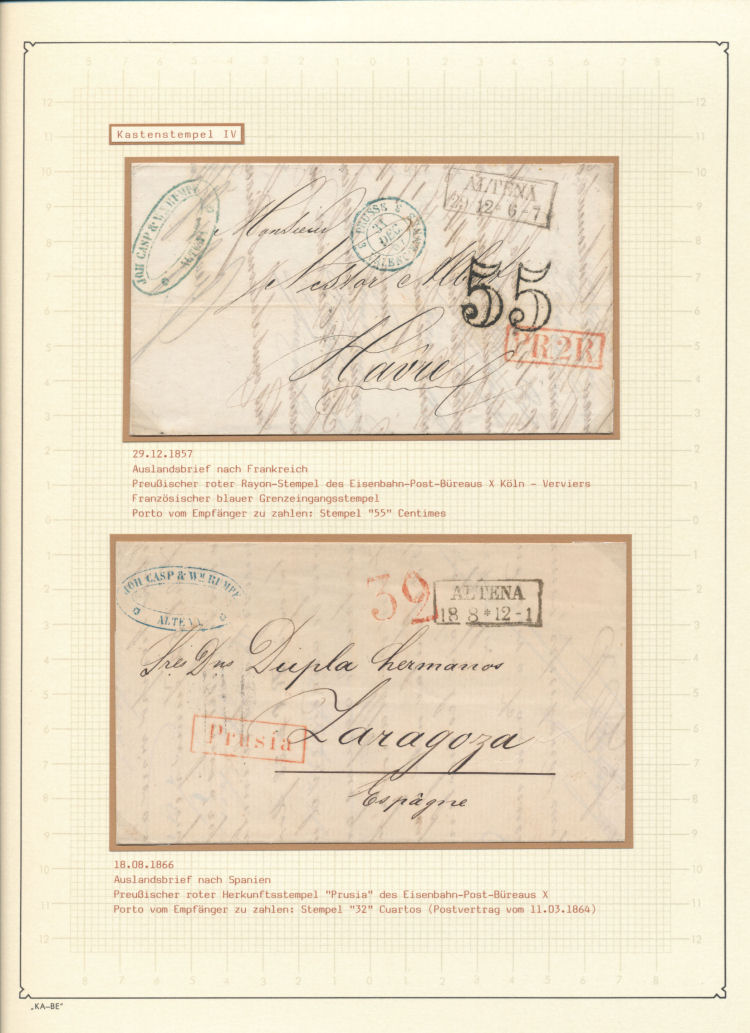 Kastenstempel IV
JOH CASP & Wm RUMPE
ALTENA
ALTENA
29 12 * 6 - 7
PRUSSE
31
DEC
57
VALENC
Monsieur
Nestor
55
PR 2R
Havre
29.12.1857
Auslandsbrief nach Frankreich
Preußischer roter Rayon-Stempel des Eisenbahn-Post-Büreaus X Köln - Verviers
Französischer blauer Grenzeingangsstempel
Porto vom Empfänger zu zahlen: Stempel "55" Centimes
JOH CASP & Wm RUMPE
ALTENA
32
ALTENA
18 8 * 12 - 1
Sres Dns Diupla hermanos
Prusia
Zaragoza
Espàgne
18.08.1866
Auslandsbrief nach Spanien
Preußischer roter Herkunftsstempel "Prusia" des Eisenbahn-Post-Büreaus X
Porto vom Empfänger zu zahlen: Stempel "32" Cuartos (Postvertrag vom 11.03.1864)
„KA-BE“